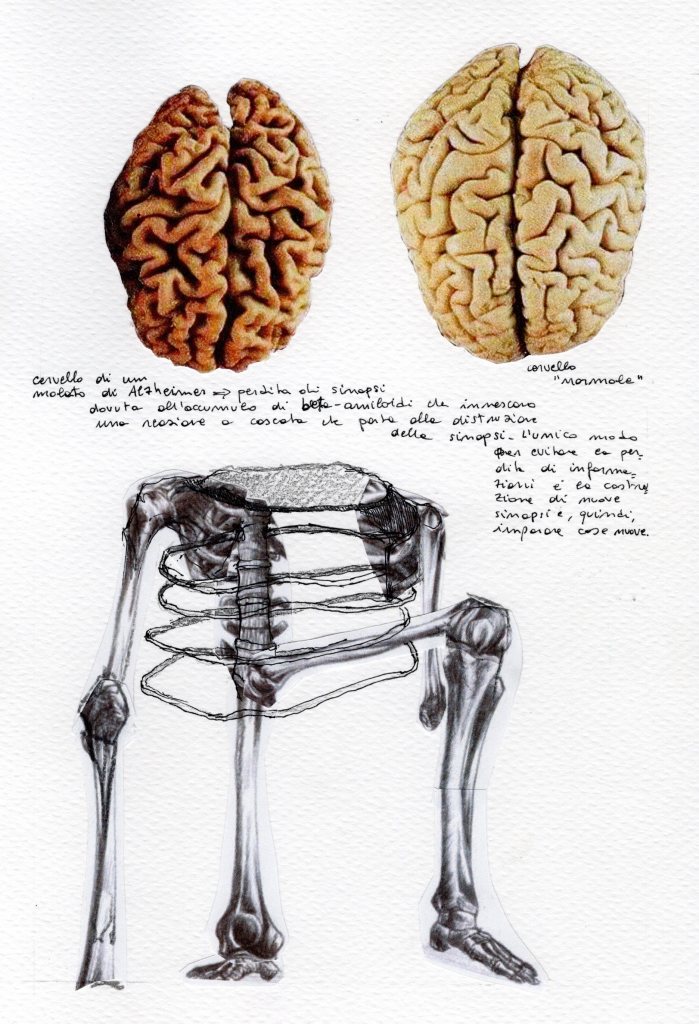 cervello di un
malato di Alzheimer => perdita di sinapsi
dovuta all'accumulo di beta-amiloidi che innescano
una reazione a cascata che porta alla distruzione
delle sinapsi. L'unico modo
per evitare la per-
dita di informa-
zioni è la costru-
zione di nuove
sinapsi e, quindi,
imparare cose nuove.
cervello
"normale"